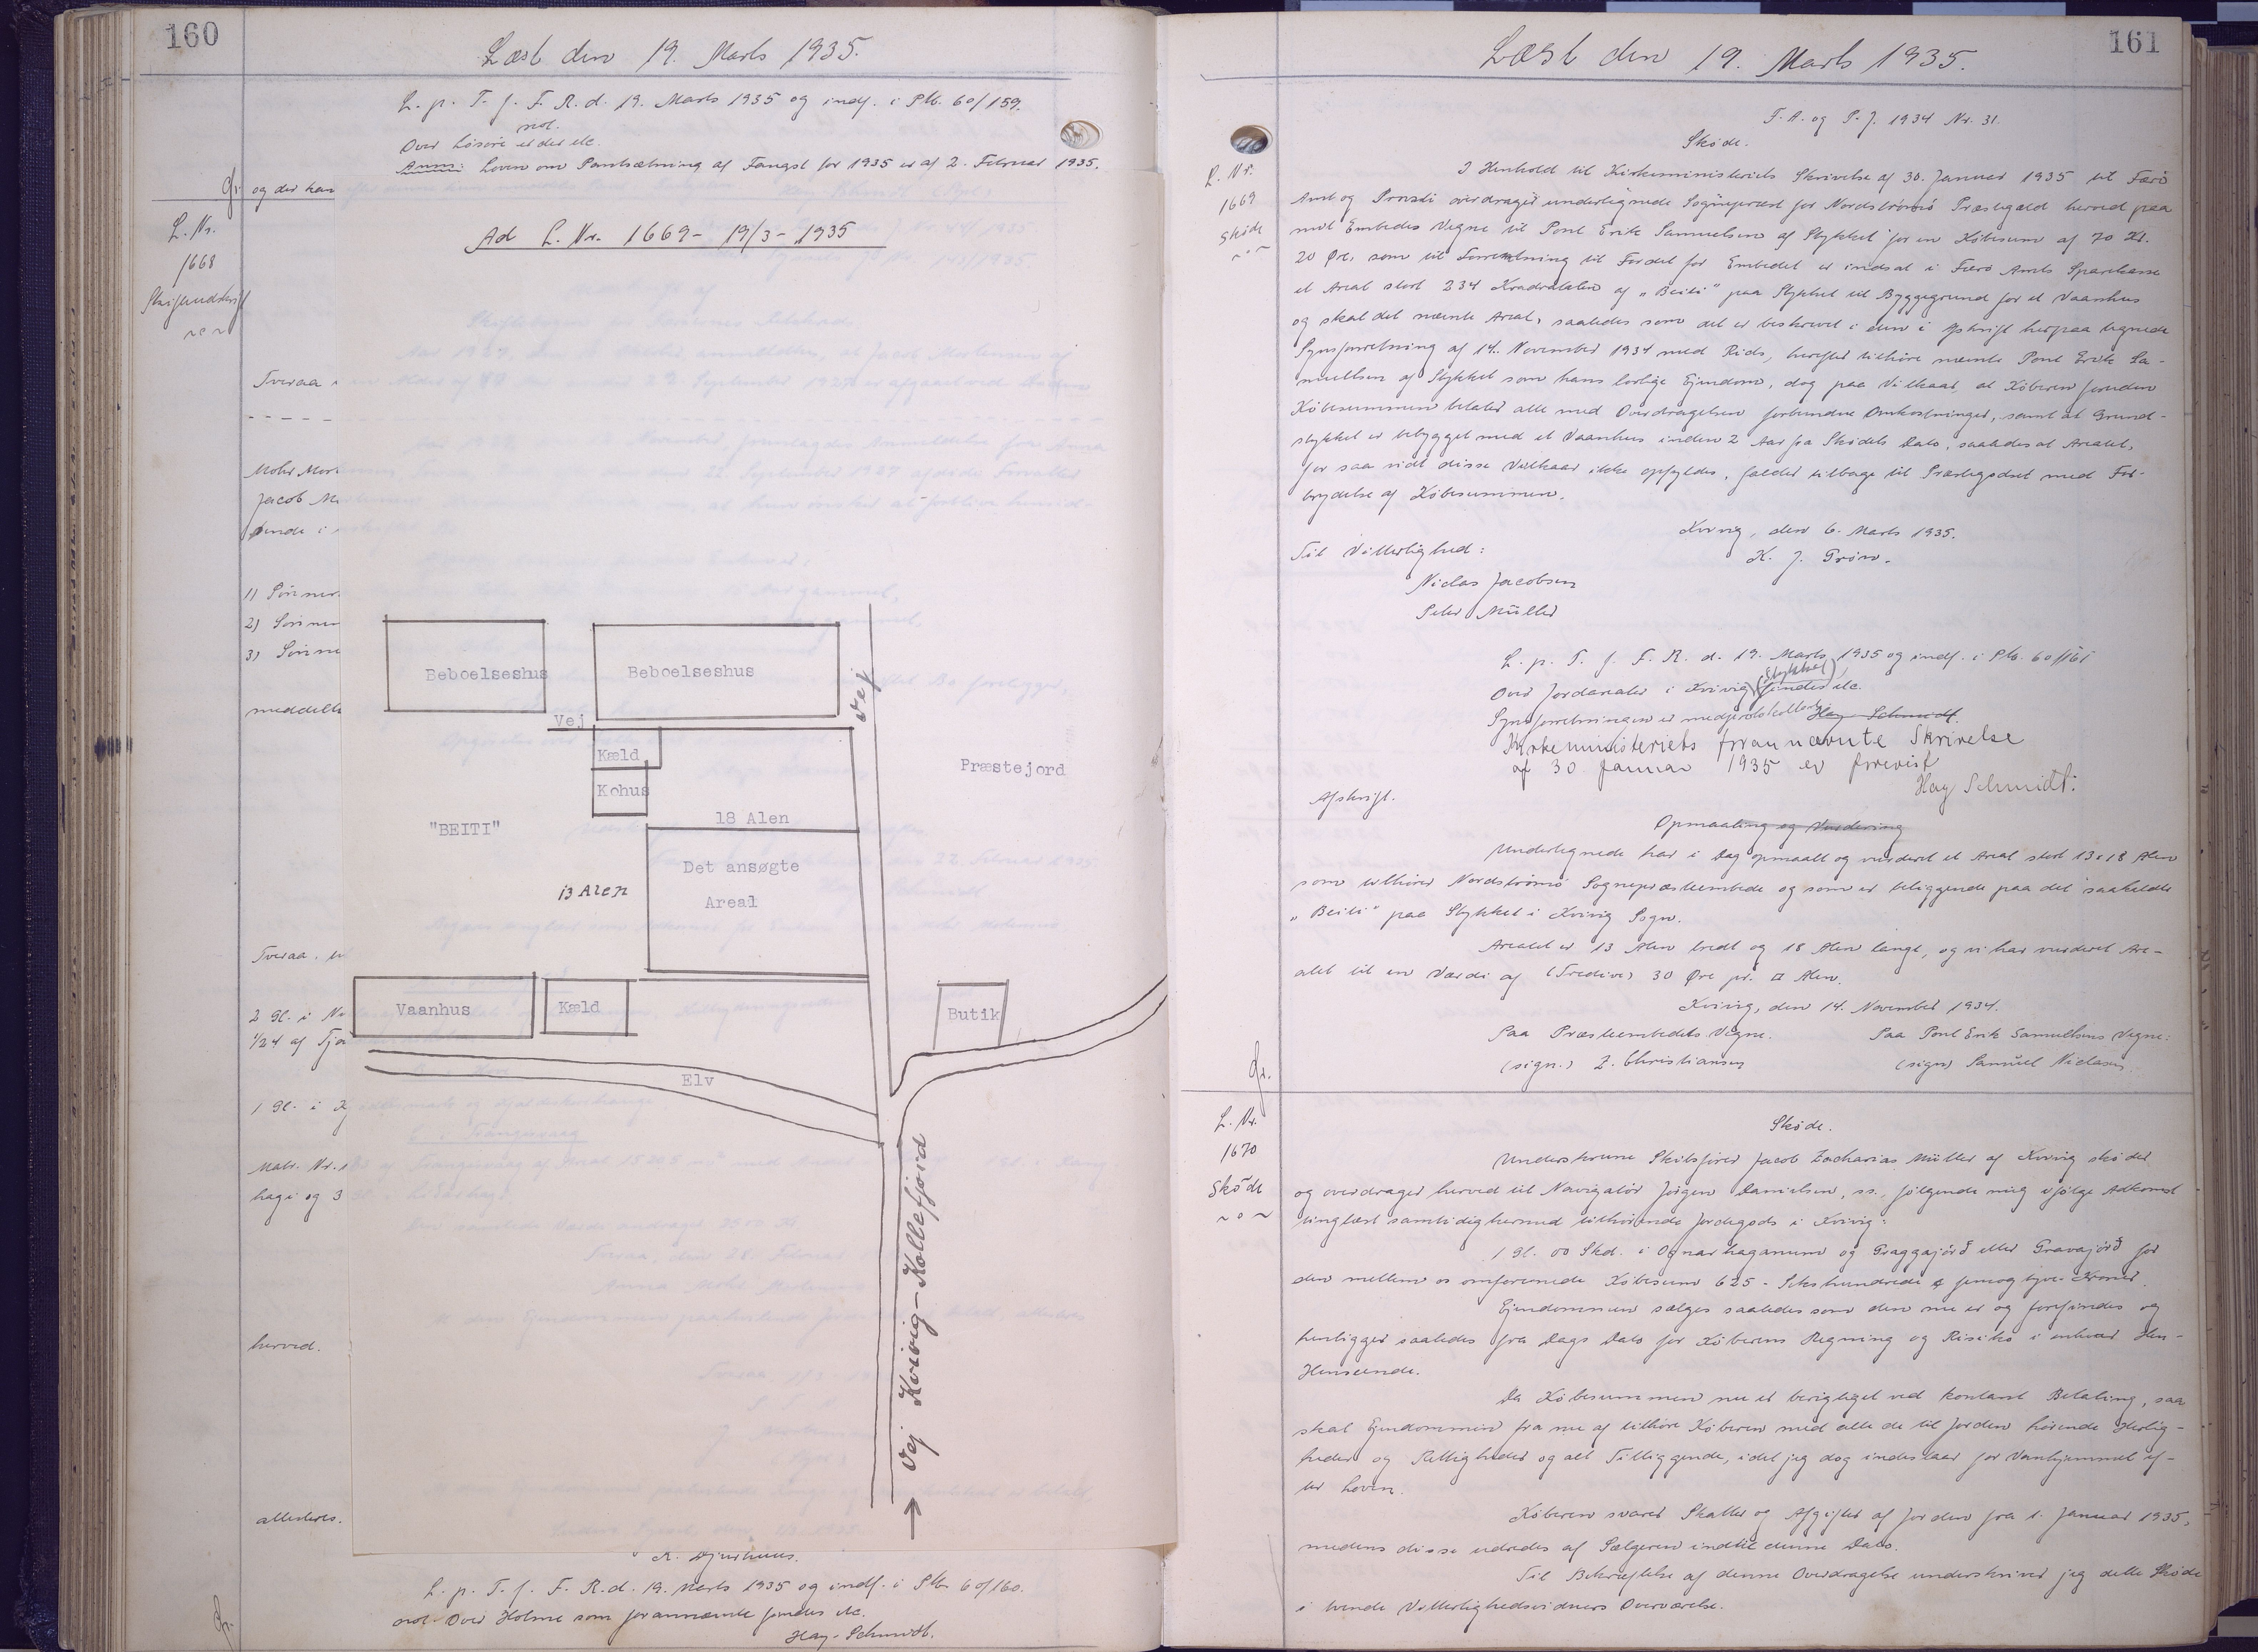 160
Læst den 19. Marts 1935.
L. p. T. f. F. R. d. 19. Marts 1935 og indf. i Ptb. 60/159.
not.
Over Løsøre er der etc.
Anm: Loven om Pantsætning af Fangst for 1935 er af 2. Februar 1935.
Gr. og der han
L. Nr.
1668
Ad L. Nr. 1669 - 19/3 - 1935
Tveraa
Mohr Mor
Jacob M
1) Sønner
2) Sønne
3) Sønne
meddelt
Tveraa
1/24 af
1 Gl. i
Matr. Nr.
hage og 3
herved.
attesteres.
Beboelseshus
Beboelseshus
Vej
Vej
Kæld
Kohus
Præstejord
"BEITI"
18 Alen
Det ansøgte
Areal
13 Alen
Vaanhus
Kæld
Butik
Elv
Vej Kvivig-Kollefjord
L. p. T. f. F. R. d. 19. Marts 1935 og indf. i Ptb. 60/160.
not. Over Holme som forannævnte findes etc.
Hay-Schmidt.
161
Læst den 19. Marts 1935.
T. A. og P. J. 1934 Nr. 31.
Skøde.
L. Nr.
1669
Skøde
I Henhold til Kirkeministeriets Skrivelse af 30. Januar 1935 til Færø
Amt og Provsti overdrager undertegnede Sognepræst for Nordstrømø Præstegæld herved paa
mit Embedes Vegne til Poul Erik Samuelsen af Stykket for en Købesum af 70 Kr.
20 Øre, som til Forrentning til Fordel for Embedet er indsat i Færø Amts Sparekasse
et Areal stort 234 Kvadratalen af „Beiti" paa Stykket til Byggegrund for et Vaanhus
og skal det nævnte Areal, saaledes som det er beskrevet i den i Afskrift herpaa tegnede
Synsforretning af 14. November 1934 med Rids, herefter tilhøre nævnte Poul Erik Sa-
muelsen af Stykket som hans lovlige Ejendom, dog paa Vilkaar, at Køberen foruden
Købesummen betaler alle med Overdragelsen forbundne Omkostninger, samt at Grund-
stykket er bebygget med et Vaanhus inden 2 Aar fra Skødets Dato, saaledes at Arealet,
for saa vidt disse Vilkaar ikke opfyldes, falder tilbage til Præstegodset med For-
brydelse af Købesummen.
Kvivig, den 6. Marts 1935.
Til Vitterlighed:
Niclas Jacobsen
Peter Müller
L. p. T. f. F. R. d. 19. Marts 1935 og indf. i Ptb. 60/161
(Stykket)
Over Jordarealer i Kvivig findes etc.
Synsforretningen er medprotokolleret Hay-Schmidt.
Kirkeministeriets forannævnte Skrivelse
af 30 Januar 1935 er forevist
Hay Schmidt.
Afskrift.
Opmaaling og Vurdering
Undertegnede har i Dag opmaalt og vurderet et Areal stort 13x18 Alen
som tilhører Nordstrømø Sognepræsteembede og som er beliggende paa det saakaldte
„Beiti" paa Stykket i Kvivig Sogn.
Arealet er 13 Alen bredt og 18 Alen langt, og vi har vurderet Are-
alet til en Værdi af (Tredive) 30 Øre pr. □ Alen.
Kvivig, den 14. November 1934.
Paa Præsteembedets Vegne. Paa Poul Erik Samuelsens Vegne:
(sign.) Z. Christiansen (sign) Samuel Niclasen
Gr.
L. Nr.
1670
Skøde
Skøde.
Underskrevne Skibsfører Jacob Zacharias Müller af Kvivig skøder
og overdrager herved til Navigatør Jørgen Danielsen, ss., følgende mig ifølge Adkomst
tinglæst samtidig hermed tilhørende Jordegods i Kvivig:
1 Gl. 00 Skd. i Ognarhaganum og Graggajørð eller Gravajørð for
den mellem os omforenede Købesum 625 - Sekshundrede femogtyve Kroner.
Ejendommen sælges saaledes som den nu er og forefindes og
henligger saaledes fra Dags Dato for Køberens Regning og Risiko i enhver Hen-
Henseende.
Da Købesummen nu er berigtiget ved kontant Betaling, saa
skal Ejendommen fra nu af tilhøre Køberen med alle de til Jorden hørende Herlig-
heder og Rettigheder og alt Tilliggende, idet jeg dog indestaar for Vanhjemmel ef-
ter Loven.
Køberen svarer Skatter og Afgifter af Jorden fra 1. Januar 1935,
medens disse udredes af Sælgeren indtil denne Dato.
Til Bekræftelse af denne Overdragelse underskriver jeg dette Skøde
i tvende Vitterlighedsvidners Overværelse.